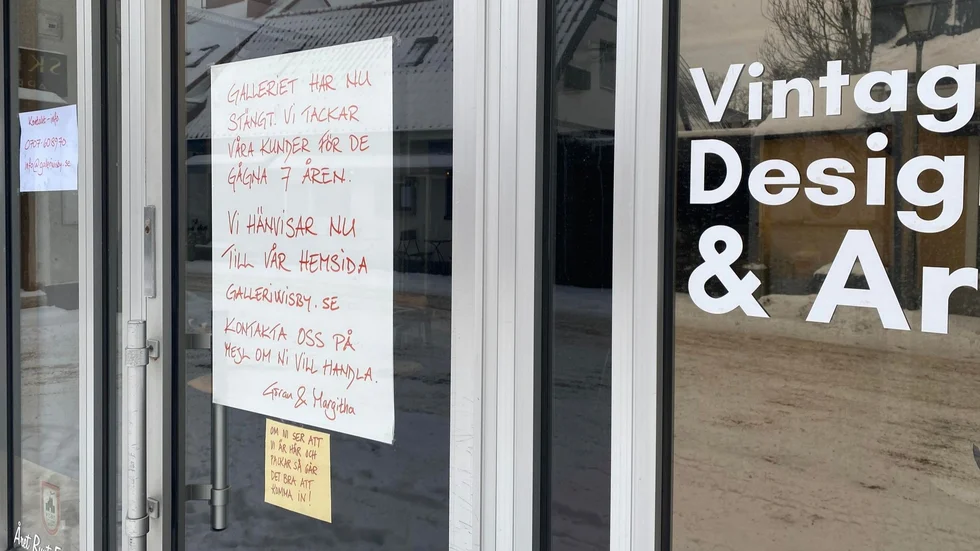 SK
Kontakt-info
0707-608970
info@galleriwisby.se
GALLERIET HAR NU
STÄNGT. VI TACKAR
VÅRA KUNDER FÖR DE
GÅGNA 7 ÅREN.
VI HÄNVISAR NU
TILL VÅR HEMSIDA
GALLERIWISBY.SE
KONTAKTA OSS PÅ
MEJL OM NI VILL HANDLA.
Göran & Margitha
OM NI SER ATT
VI ÄR HÄR OCH
PACKAR SÅ GÅR
DET BRA ATT
KOMMA IN!
Vintag
Desig
& Ar
Året Runt